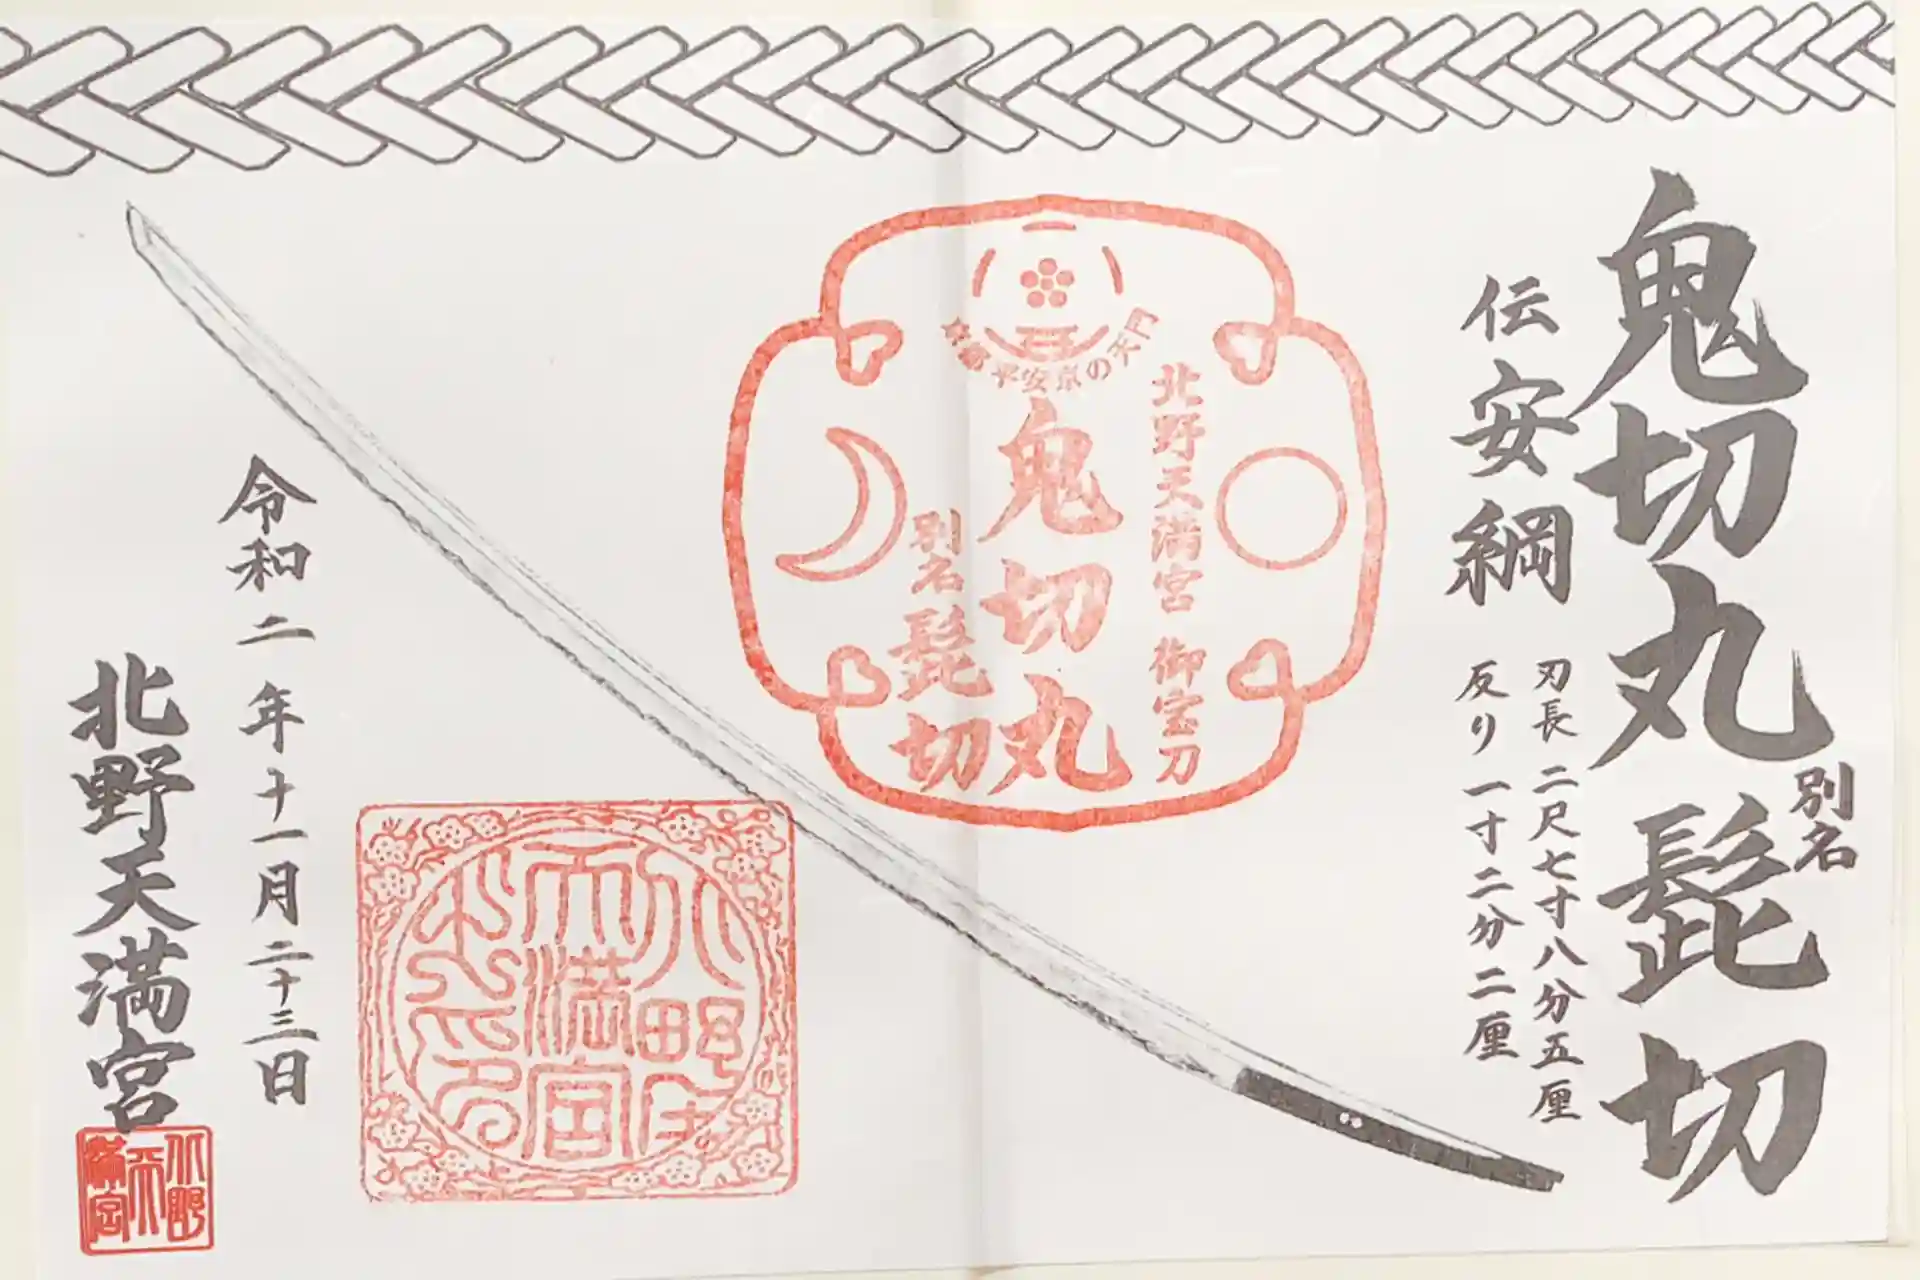 鬼切丸
別名
髭切
伝安綱
刃長 二尺七寸八分五厘
反り 一寸二分二厘
京都平安京の天門
北野天満宮 御宝刀
鬼切丸
別名
髭切
北野
天満宮
令和二年十一月二十三日
北野天満宮
北野
天
満宮